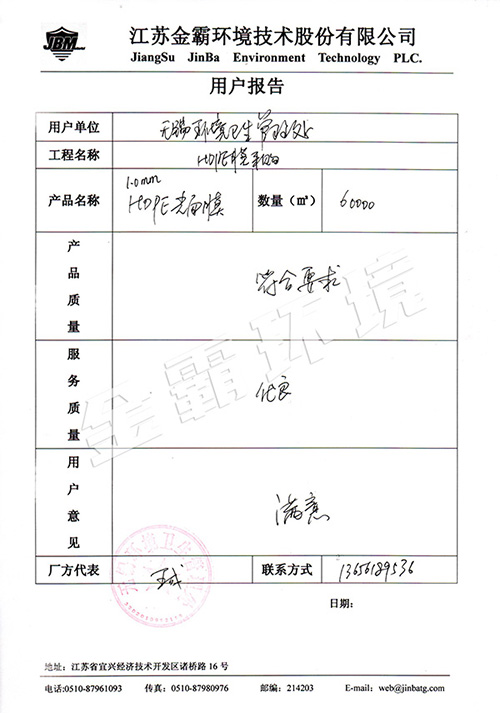 JBM
江苏金霸环境技术股份有限公司
JiangSu JinBa Environment Technology PLC.
用户报告
用户单位 无锡环境卫生管理处
工程名称 HDPE膜采购
产品名称 1.0mm HDPE光面膜 数量（㎡） 60000
产品质量 符合要求
服务质量 优良
用户意见 满意
厂方代表 联系方式 13656189536
日期：
金霸环境
地址：江苏省宜兴经济技术开发区诸桥路 16 号
电话:0510-87961093 传真：0510-87980976 邮编：214203 E-mail：web@jinbatg.com